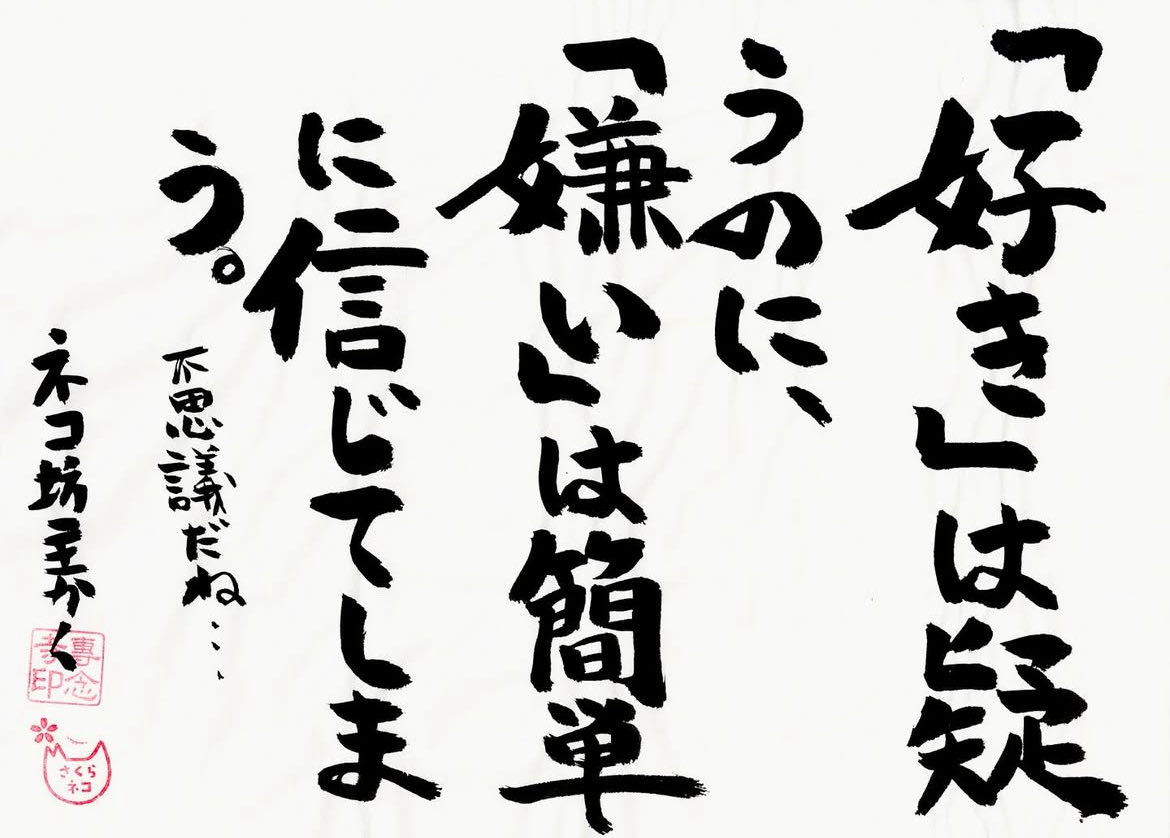 「好き」は疑
うのに、
「嫌い」は簡単
に信じてしま
う。
不思議だね…
ネコ坊主かく
専念
寺印
さくら
ネコ